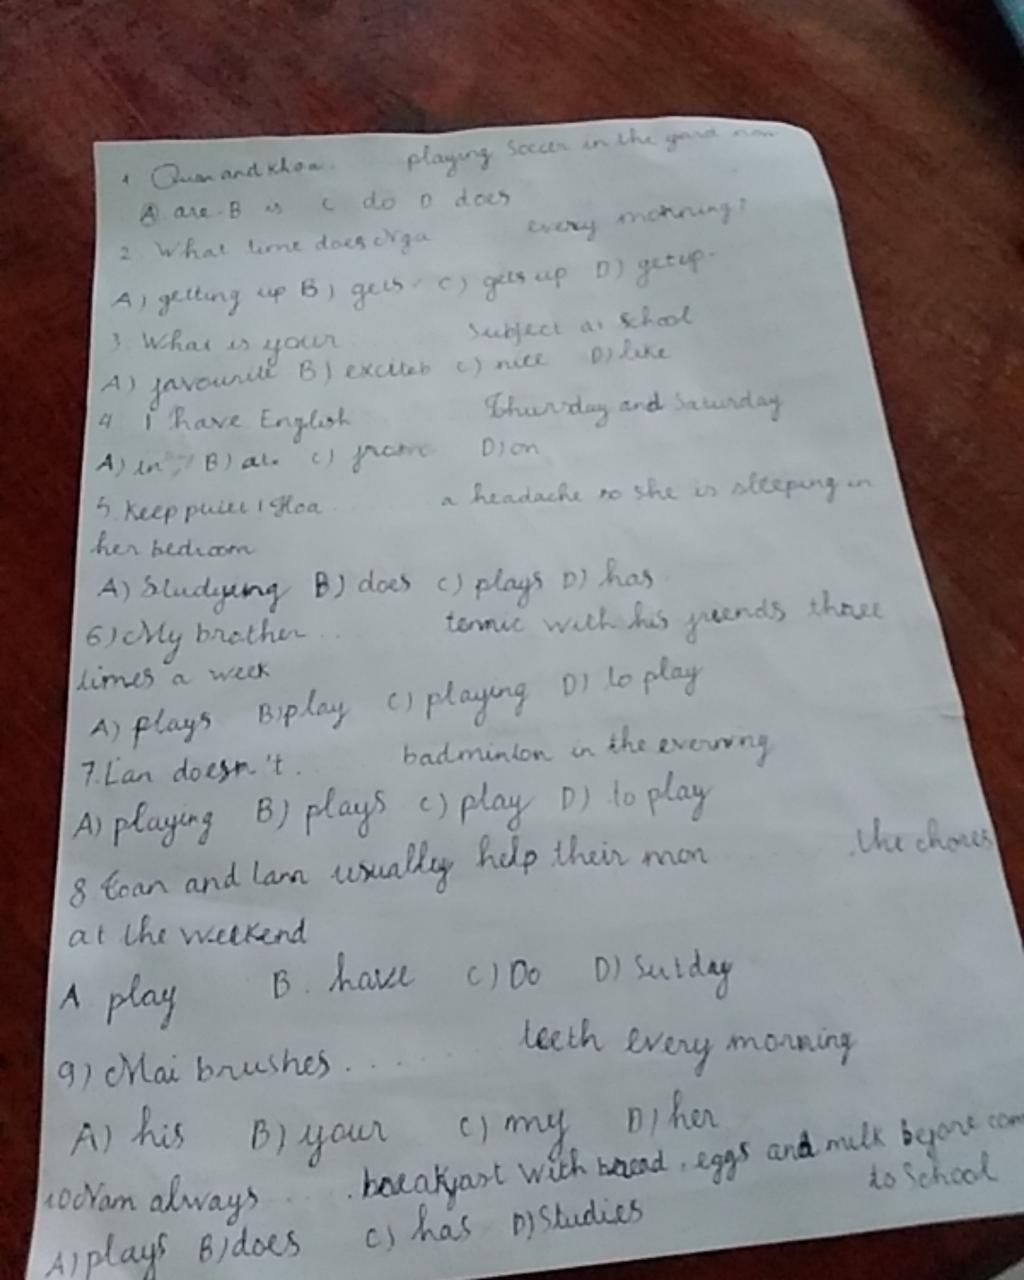 1 Quan and khoa. playing Soccer in the yard now
A are. B is C do D does
2. What time does Nga every morning?
A) getting up B) gets. C) gets up D) get up.
3. What is your Subject at School
A) favourite B) excited C) nice D) like
4 I have English Thursday and Saturday
A) in B) at. C) from D) on
5. Keep puiet! Hoa a headache so she is sleeping in
her bedroom
A) Studying B) does C) plays D) has
6) My brother ... tennic with his friends three
times a week
A) plays B) play C) playing D) to play
7. Lan doesn't. badminton in the everning
A) playing B) plays C) play D) to play
8 Toan and Lan usually help their mon .the chores
at the weekend
A play B. have C) Do D) Sutday
9) Mai brushes.... teeth every morning
A) his B) your C) my D) her
10 Nam always .... breakfast with bread, eggs and milk before
to School
A) plays B) does C) has D) Studies